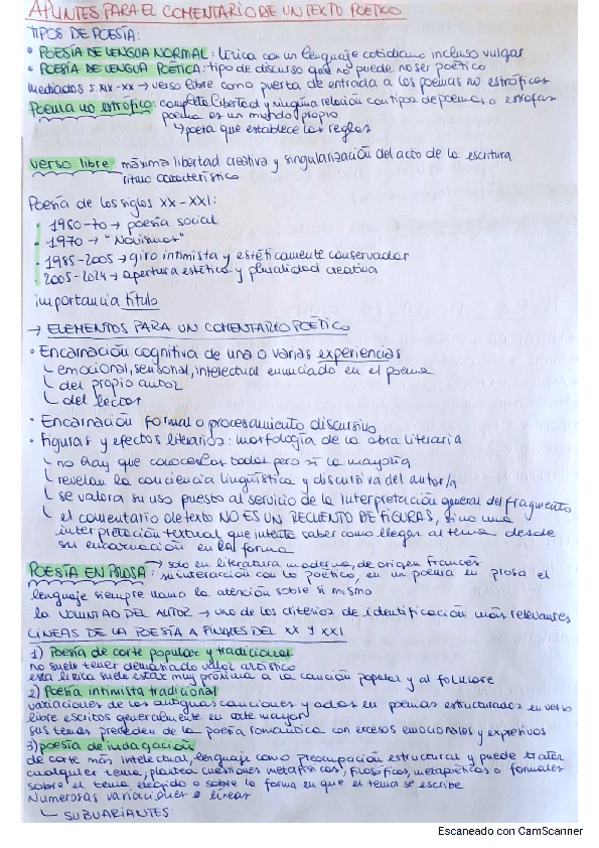 APUNTES PARA EL COMENTARIO DE UN TEXTO POÉTICO
TIPOS DE POESÍA:
• POESÍA DE LENGUA NORMAL: lírica con un lenguaje cotidiano incluso vulgar
• POESÍA DE LENGUA POÉTICA: tipo de discurso que no puede no ser poético
mediados s.XIX-XX → verso libre como puerta de entrada a los poemas no estróficos
Poema no estrófico: completa libertad y ninguna relación con tipos de poemas o estrofas
poema es un mundo propio
↳ poeta que establece las reglas
verso libre máxima libertad creativa y singularización del acto de la escritura
ritmo característico
Poesía de los siglos XX-XXI:
· 1950-70 → poesía social
· 1970 → "Novísimos"
· 1985-2005 → giro intimista y estéticamente conservador
· 2005-2024 → apertura estética y pluralidad creativa
importancia título
→ ELEMENTOS PARA UN COMENTARIO POÉTICO
• Encarnación cognitiva de una o varias experiencias
emocional, sensorial, intelectual enunciado en el poema
del propio autor
del lector
• Encarnación formal o procesamiento discursivo
• Figuras y efectos literarios: morfología de la obra literaria
no hay que conocerlas todas pero sí la mayoría
revelan la conciencia lingüística y discursiva del autor/a
se valora su uso puesto al servicio de la interpretación general del fragmento
el comentario de texto NO ES UN RECUENTO DE FIGURAS, sino una
interpretación textual que intenta saber como llegar al tema desde
su encarnación en la forma
POESÍA EN PROSA → solo en literatura moderna, de origen francés
su interacción con lo poético, en un poema en prosa el
lenguaje siempre llama la atención sobre sí mismo
la VOLUNTAD DEL AUTOR → uno de los criterios de identificación más relevantes
LÍNEAS DE LA POESÍA A FINALES DEL XX Y XXI
1) Poesía de corte popular y tradicional
no suele tener demasiado valor artístico
esta lírica suele estar muy próxima a la canción popular y al folklore
2) Poesía intimista tradicional
variaciones de las antiguas canciones y odas en poemas estructurados en verso
libre escritos generalmente en arte mayor
sus temas proceden de la poesía romántica con excesos emocionales y expresivos
3) poesía de indagación
de corte más intelectual, lenguaje como preocupación estructural y puede tratar
cualquier tema, plantea cuestiones metafísicas, filosóficas, metapoéticas o formales
sobre el tema elegido o sobre la forma en que el tema se escribe
Numerosas variaciones o líneas
SUBVARIANTES:
Escaneado con CamScanner